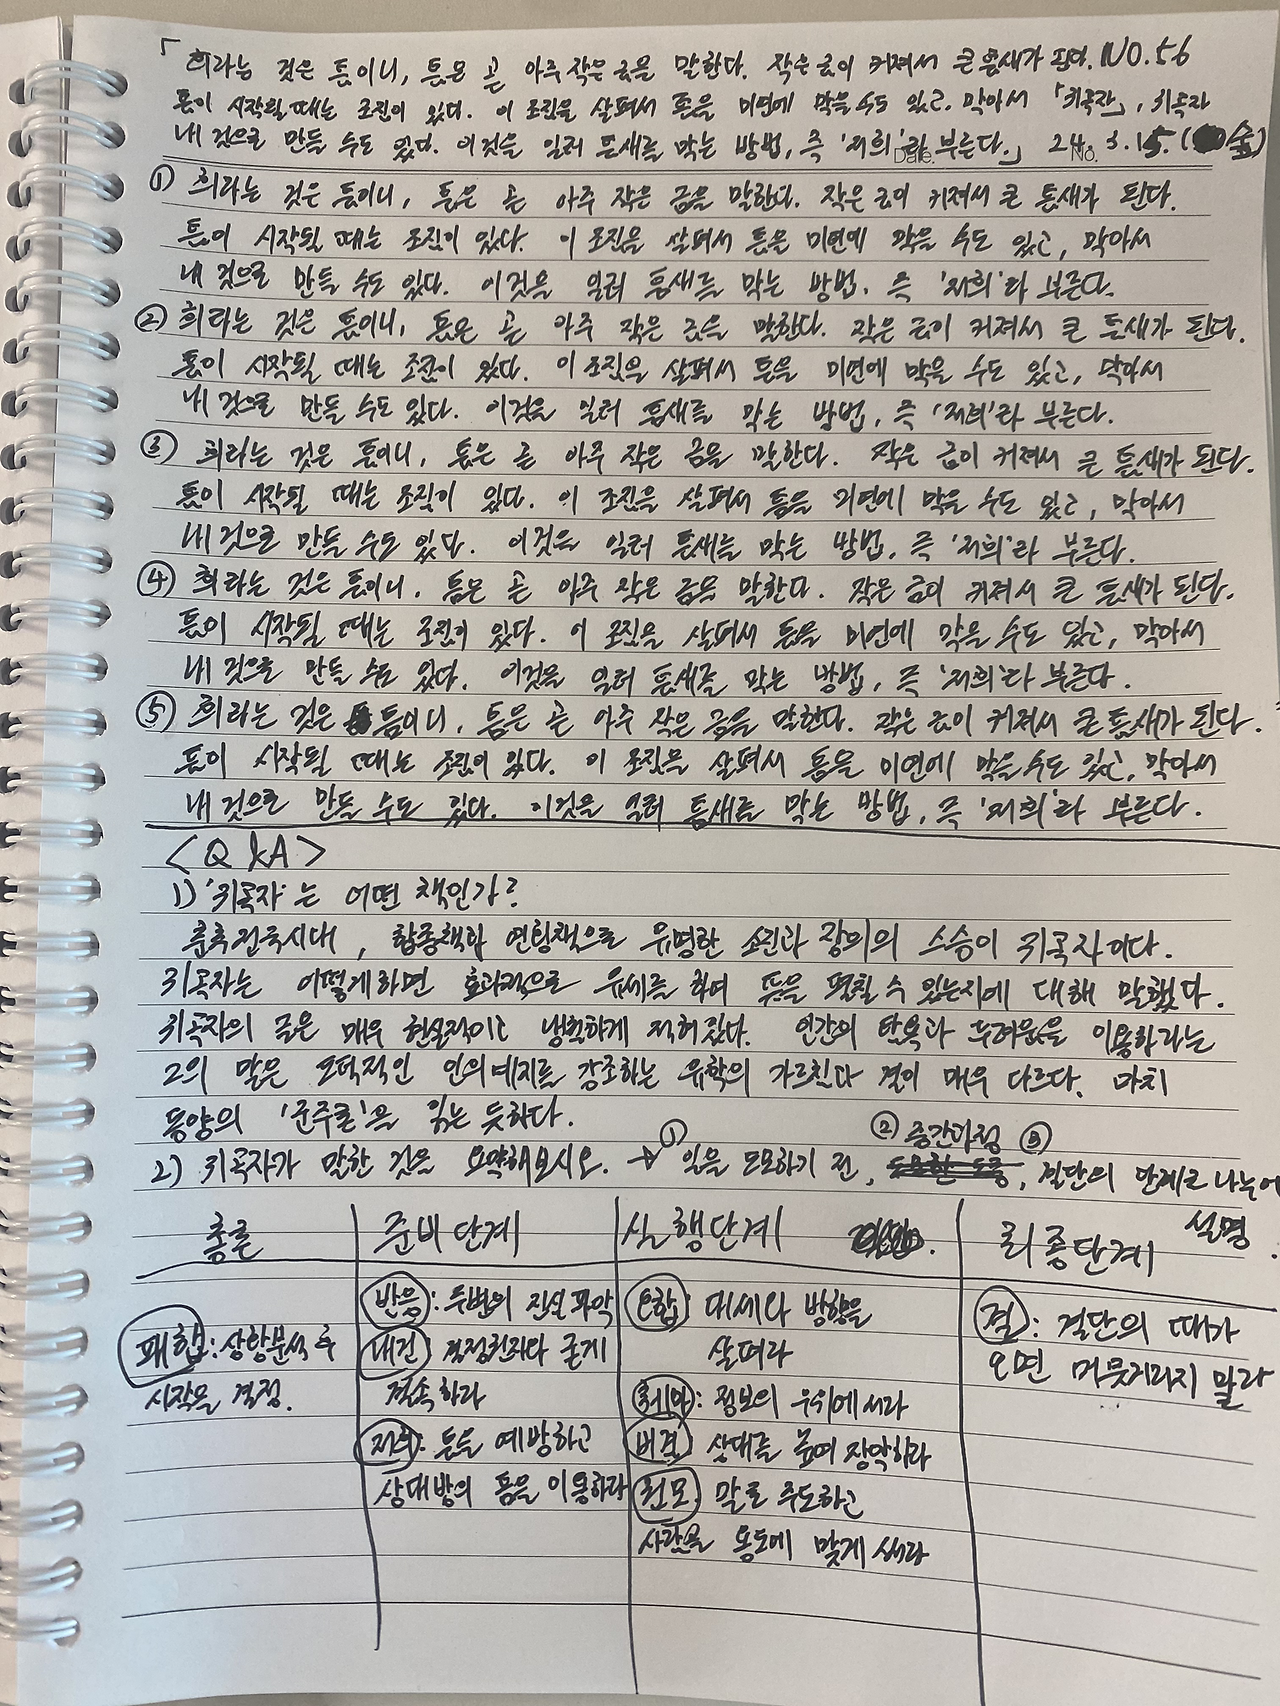 「희라는 것은 틈이니, 틈은 곧 아주 작은 금을 말한다. 작은 금이 커져서 큰 틈새가 된다. NO.56
틈이 시작될 때는 조짐이 있다. 이 조짐을 살펴서 틈을 미연에 막을 수도 있고, 막아서 「귀곡자」, 귀곡자
내 것으로 만들 수도 있다. 이것을 일러 틈새를 막는 방법, 즉 '저희'라 부른다.」 24. 3. 15. (金)
Date. No.
① 희라는 것은 틈이니, 틈은 곧 아주 작은 금을 말한다. 작은 금이 커져서 큰 틈새가 된다.
틈이 시작될 때는 조짐이 있다. 이 조짐을 살펴서 틈을 미연에 막을 수도 있고, 막아서
내 것으로 만들 수도 있다. 이것을 일러 틈새를 막는 방법, 즉 '저희'라 부른다.
② 희라는 것은 틈이니, 틈은 곧 아주 작은 금을 말한다. 작은 금이 커져서 큰 틈새가 된다.
틈이 시작될 때는 조짐이 있다. 이 조짐을 살펴서 틈을 미연에 막을 수도 있고, 막아서
내 것으로 만들 수도 있다. 이것을 일러 틈새를 막는 방법, 즉 '저희'라 부른다.
③ 희라는 것은 틈이니, 틈은 곧 아주 작은 금을 말한다. 작은 금이 커져서 큰 틈새가 된다.
틈이 시작될 때는 조짐이 있다. 이 조짐을 살펴서 틈을 미연에 막을 수도 있고, 막아서
내 것으로 만들 수도 있다. 이것을 일러 틈새를 막는 방법, 즉 '저희'라 부른다.
④ 희라는 것은 틈이니, 틈은 곧 아주 작은 금을 말한다. 작은 금이 커져서 큰 틈새가 된다.
틈이 시작될 때는 조짐이 있다. 이 조짐을 살펴서 틈을 미연에 막을 수도 있고, 막아서
내 것으로 만들 수도 있다. 이것을 일러 틈새를 막는 방법, 즉 '저희'라 부른다.
⑤ 희라는 것은 틈이니, 틈은 곧 아주 작은 금을 말한다. 작은 금이 커져서 큰 틈새가 된다.
틈이 시작될 때는 조짐이 있다. 이 조짐을 살펴서 틈을 미연에 막을 수도 있고, 막아서
내 것으로 만들 수도 있다. 이것을 일러 틈새를 막는 방법, 즉 '저희'라 부른다.
<Q&A>
1) '귀곡자'는 어떤 책인가?
춘추전국시대, 합종책과 연횡책으로 유명한 소진과 장의의 스승이 귀곡자이다.
귀곡자는 어떻게하면 효과적으로 유세를 하여 뜻을 펼칠 수 있는지에 대해 말했다.
귀곡자의 글은 매우 현실적이고 냉혹하게 적혀있다. 인간의 탐욕과 두려움을 이용하라는
그의 말은 도덕적인 인의예지를 강조하는 유학의 가르침과 결이 매우 다르다. 마치
동양의 '군주론'을 읽는 듯하다.
2) 귀곡자가 말한 것을 요약해보시오. → ① 일을 도모하기 전, ② 중간과정, ③ 결단의 단계로 나누어
설명.
총론 준비단계 실행단계 최종단계
패합: 상황분석 후
시작을 결정.
반응: 두번의 진실 파악
내건: 결정권자와 굳게
결속하라
저희: 틈을 예방하고
상대방의 틈을 이용하라
오합: 대세와 방향을
살펴라
췌마: 정보의 우위에 서라
비겸: 상대를 높여 장악하라
권모: 말로 주도하고
사람을 용도에 맞게 써라
결: 결단의 때가
오면 머뭇거리지 말라